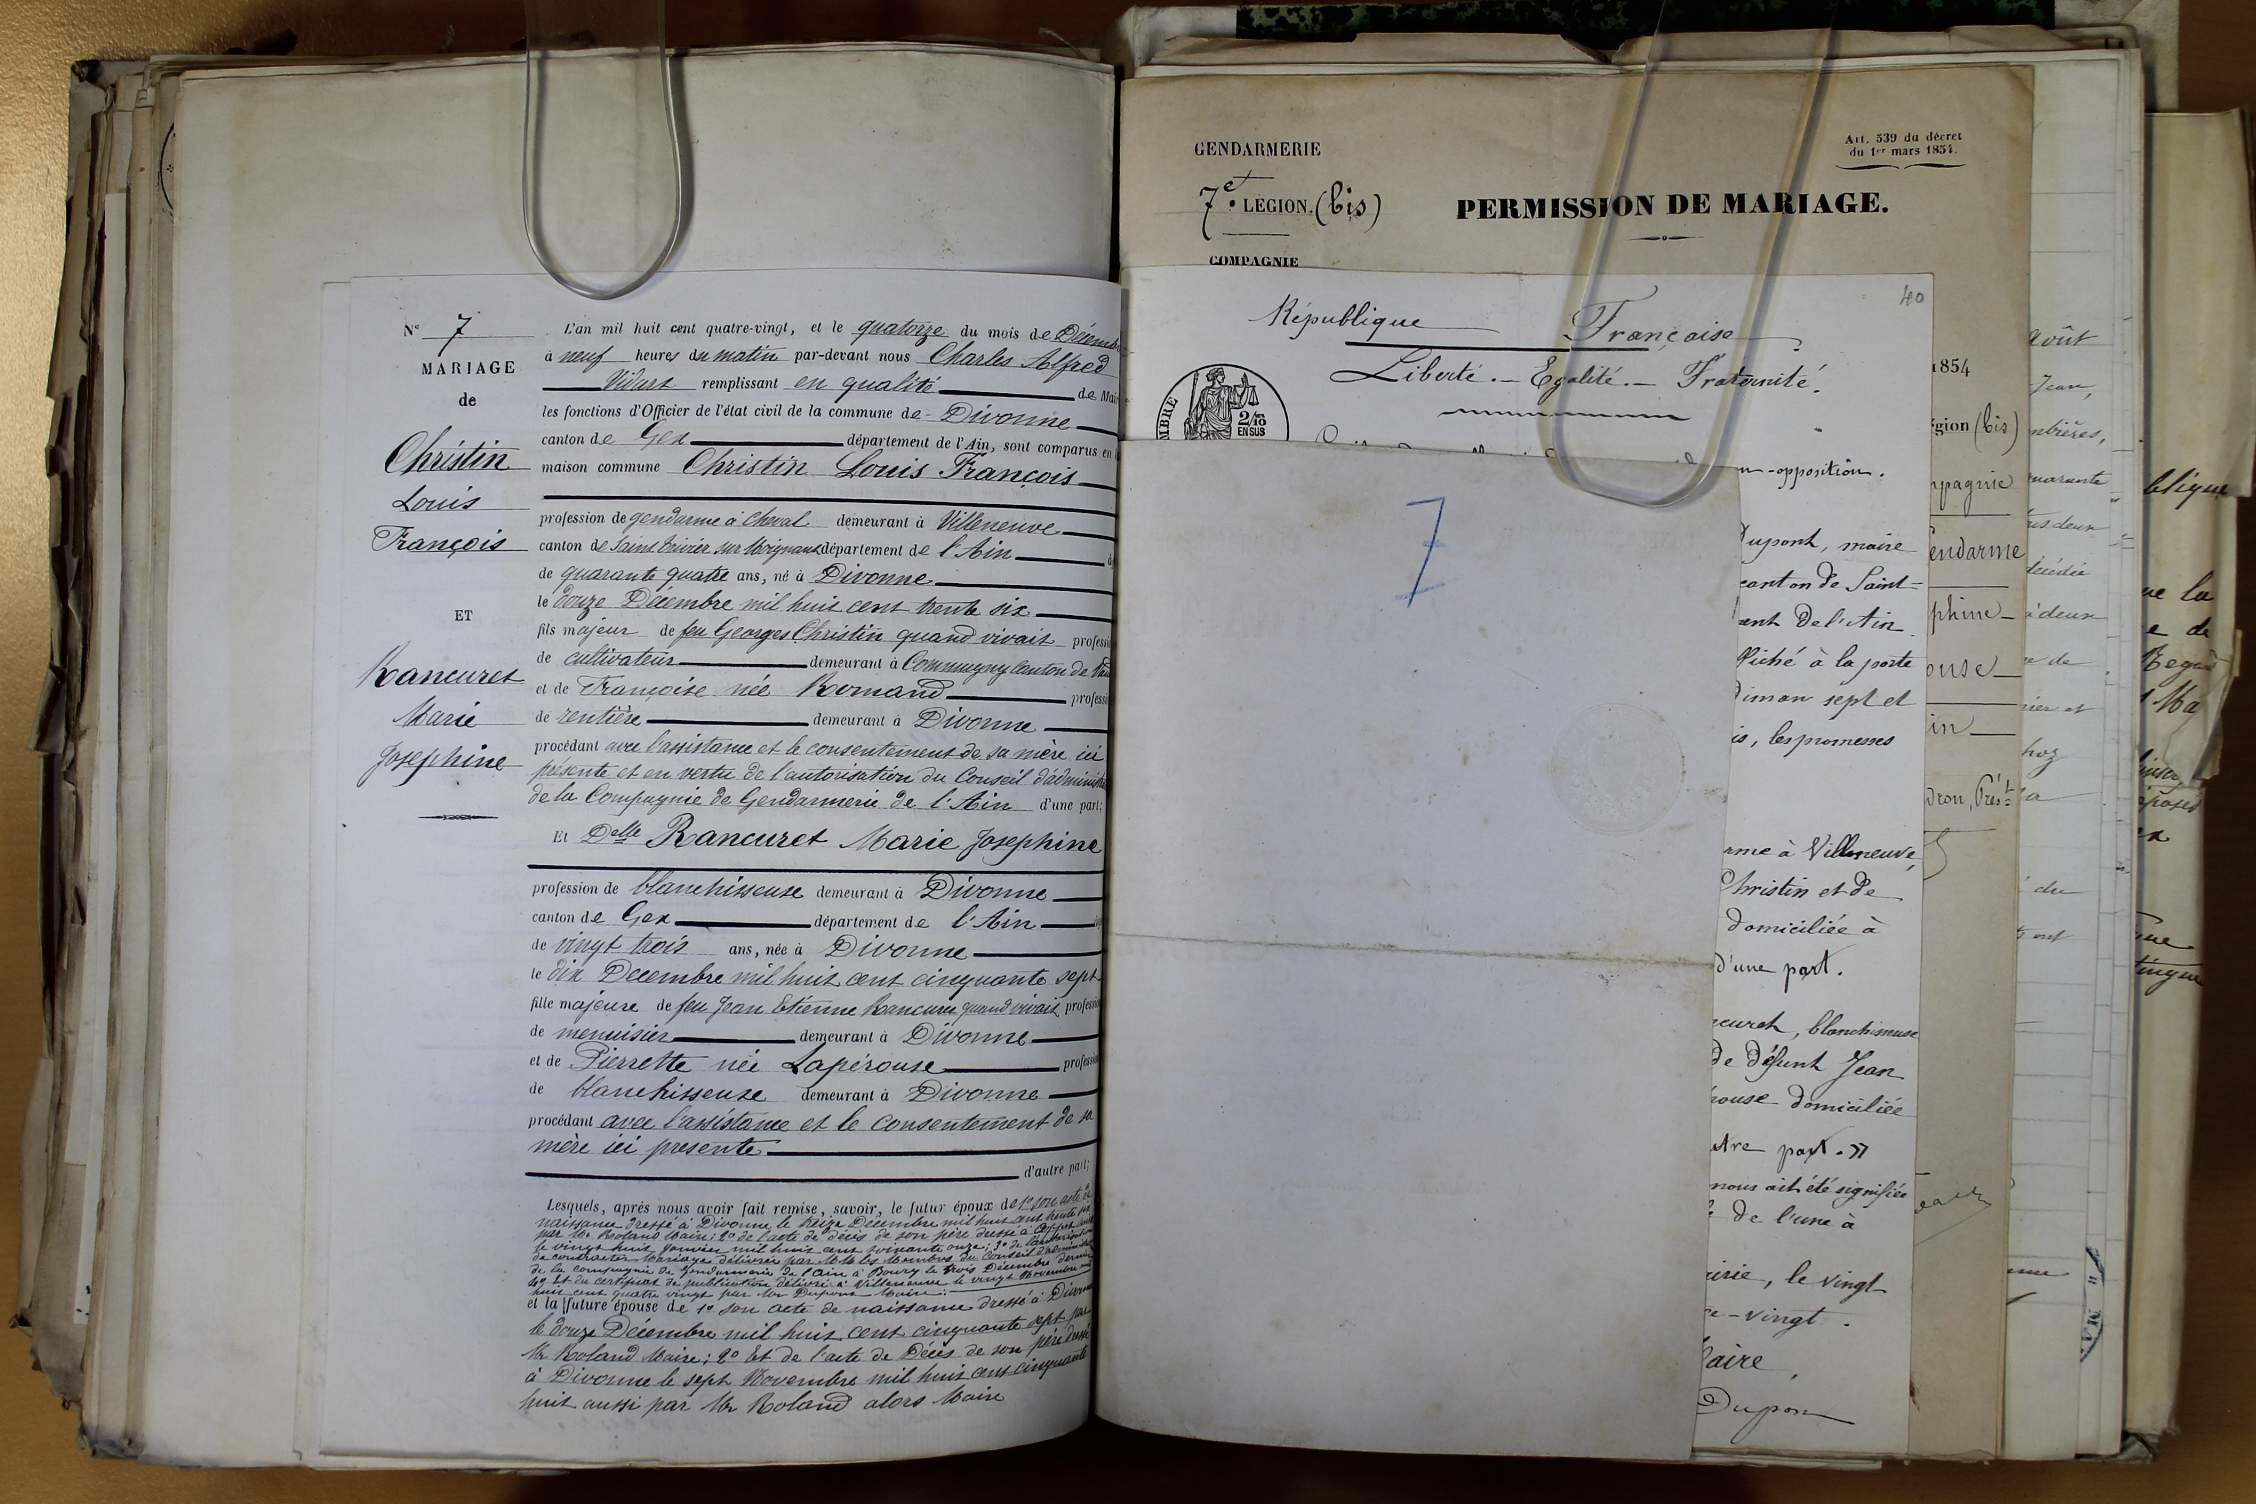 Nº 7
MARIAGE
de
Christin
Louis
François
ET
Rancuret
Marie
Josephine
L'an mil huit cent quatre-vingt, et le quatorze du mois de Décemb
à neuf heures du matin par-devant nous Charles Alfred
Vidart remplissant en qualité de Mair
les fonctions d'Officier de l'état civil de la commune de Divonne
canton de Gex département de l'Ain, sont comparus en
maison commune Christin Louis François
profession de gendarme à cheval demeurant à Villeneuve
canton de Saint Trivier sur Moignans département de l'Ain
de quarante quatre ans, né à Divonne
le douze Décembre mil huit cent trente six
fils majeur de feu Georges Christin quand vivait profess
de cultivateur demeurant à Commugny Canton de Vaud
et de Françoise née Romand profess
de rentière demeurant à Divonne
procédant avec l'assistance et le consentement de sa mère ici
présente et en vertu de l'autorisation du Conseil d'administ
de la Compagnie de Gendarmerie de l'Ain d'une part;
Et Delle Rancuret Marie Josephine
profession de blanchisseuse demeurant à Divonne
canton de Gex département de l'Ain
de vingt trois ans, née à Divonne
le dix Decembre mil huit cent cinquante sept
fille majeure de feu Jean Etienne Rancuret quand vivait profess
de menuisier demeurant à Divonne
et de Pierrette née Lapérouse profess
de blanchisseuse demeurant à Divonne
procédant avec l'assistance et le consentement de sa
mère ici presente
d'autre part;
Lesquels, après nous avoir fait remise, savoir, le futur époux de 1º son acte de
naissance dressé à Divonne le treize Décembre mil huit cent trente six
par Mr Roland Maire; 2º de l'acte de décès de son père dressé à Coppet
le vingt huit Janvier mil huit cent soixante onze; 3º de l'autorisation
de contracter Mariage délivrée par MM les Membres du Conseil d'administ
de la compagnie de Gendarmerie de l'Ain à Bourg le trois Décembre dernier
4º Et du certificat de publication délivré à Villeneuve le vingt Novembre mil
huit cent quatre vingt par Mr Dupont Maire.
et la future épouse de 1º son acte de naissance dressé à Divonne
le douze Décembre mil huit cent cinquante sept par
Mr Roland Maire; 2º Et de l'acte de Décès de son père dressé
à Divonne le sept Novembre mil huit cent cinquante
huit aussi par Mr Roland alors Maire
GENDARMERIE
7e. LEGION. (bis)
COMPAGNIE
Art. 539 du décret
du 1er mars 1854.
PERMISSION DE MARIAGE.
40
République Française
Liberté. - Egalité. - Fraternité.
MBRE
2/10
EN SUS
7
n-opposition.
Dupont, maire
canton de Saint-
ent de l'Ain
ffiché à la porte
diman sept et
is, les promesses
rme à Villeneuve,
Christin et de
domiciliée à
d'une part.
curet, blanchisseuse
de défunt Jean
rouse domiciliée
utre part."
nous ait été signifiée
de l'une à
irie, le vingt
e-vingt.
Maire,
Dupon
1854
égion (bis)
mpagnie
Gendarme
phine
ouse
in
dron, Prést
août
Jean,
mbières,
quarante
décédée
à deux
e de
du
blique
ue la
e de
Ma